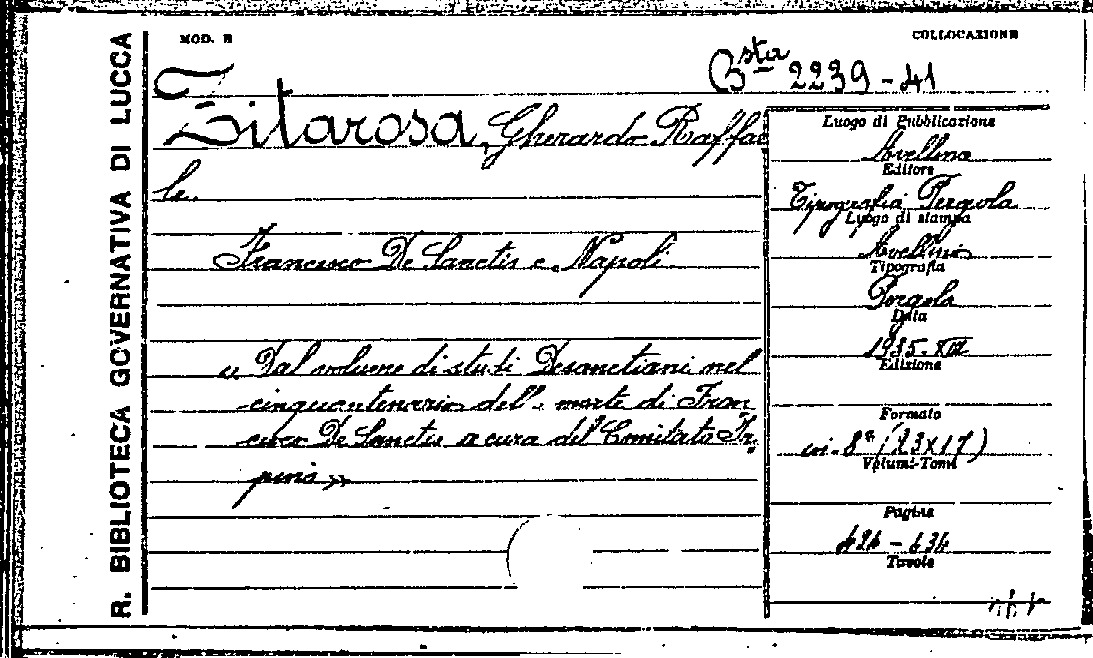 R. BIBLIOTECA GOVERNATIVA DI LUCCA
MOD. B
COLLOCAZIONE
Bsta 2239-41
Zitarosa, Gherardo Raffae
le.
Francesco De Sanctis e Napoli
« Dal volume di studi Desanctiani nel
cinquantenario dell. morte di Fran
cesco De Sanctis a cura del Comitato Ir
pino »
Luogo di Pubblicazione
Avellino
Editore
Tipografia Pergola
Luogo di stampa
Avellino
Tipografia
Pergola
Data
1935-XIII
Edizione
Formato
in-8° (23x17)
Volumi-Tomi
Pagine
Tavole